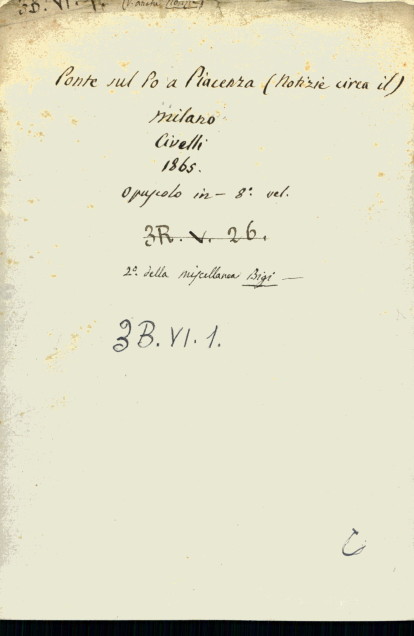 3B. VI. 1.
Ponte sul Po a Piacenza (Notizie circa il)
Milano
Civelli
1865.
Opuscolo in - 8º. vel.
3R. V. 26.
2º. della miscellanea Bigi —
3B. VI. 1.